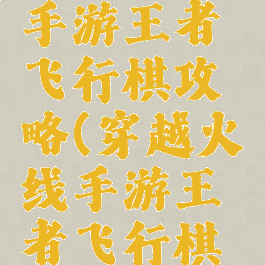 手游王者
飞行棋攻
略(穿越火
线手游王
者飞行棋